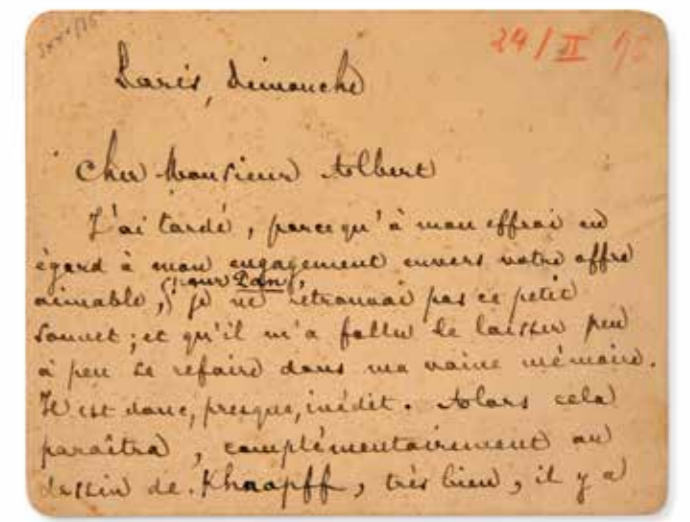 24/II 95
Paris, Dimanche
Cher Monsieur Albert
J'ai tardé, parce qu'à mon effroi eu
égard à mon engagement envers votre offre
(pour Pan),
aimable, je ne retrouvai pas ce petit
sonnet; et qu'il m'a fallu le laisser peu
à peu se refaire dans ma vaine mémoire.
Il est donc, presque, inédit. Alors cela
paraîtra, complémentairement au
dessin de Khnopff, très bien, il y a